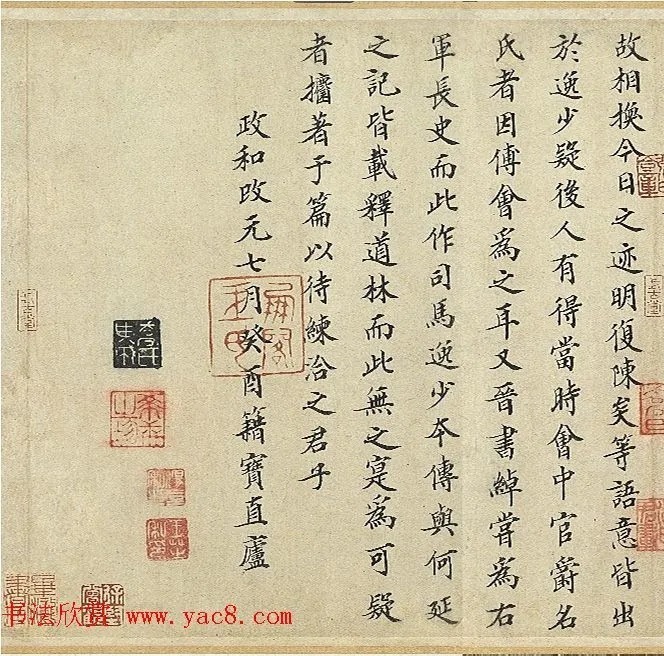 故相換今日之迹明復陳矣等語意皆出
於逸少疑後人有得當時會中官爵名
氏者因傅會為之耳又晉書綽嘗為右
軍長史而此作司馬逸少本傳與何延
之記皆載釋道林而此無之寔為可疑
者攟著于篇以待練洽之君子
政和改元七月癸酉籍寶直廬
书法欣赏 www.yac8.com